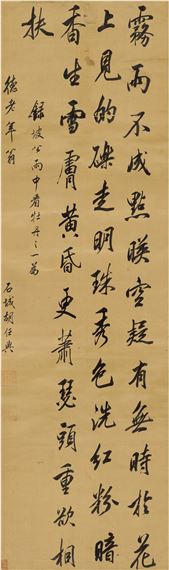 霧雨不成點暎空疑有無時於花
上見的礫走明珠秀色洗紅粉暗
香生雪膚黃昏更蕭瑟頭重欲相
扶
錄坡公雨中看牡丹之一為
德老年翁
石城胡任輿